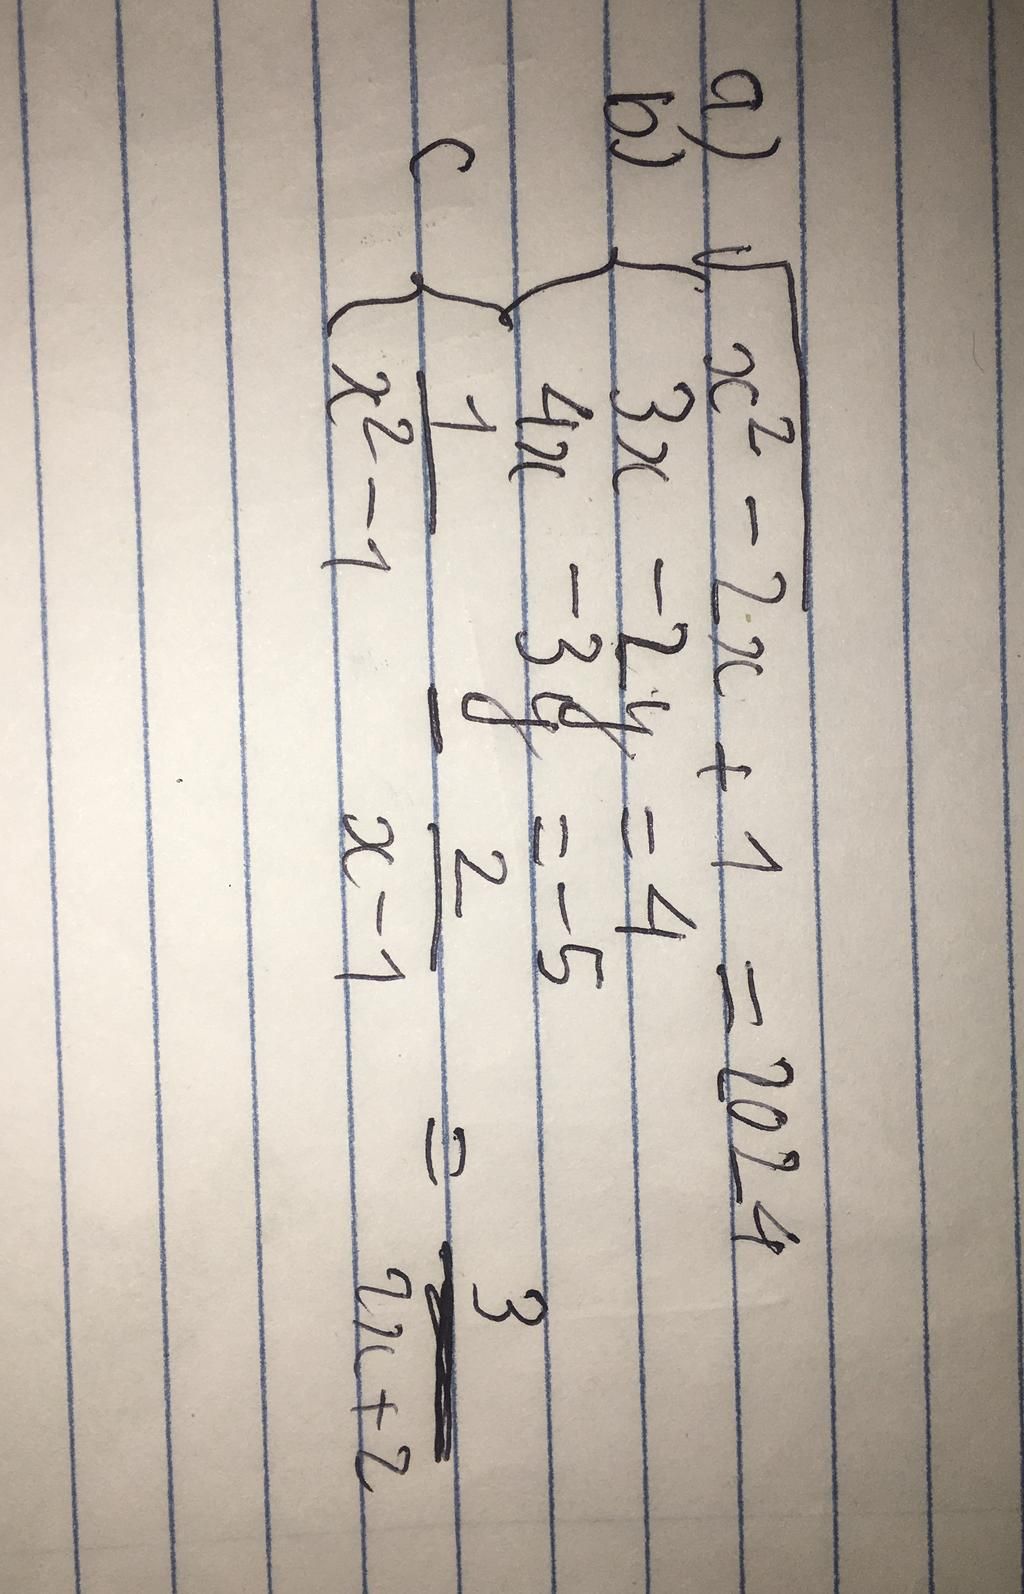 a) √(x² - 2x + 1) = 2024
b) { 3x - 2y = 4
4x - 3y = -5
c { 1/(x² - 1) - 2/(x - 1) = 3/(2x + 2)